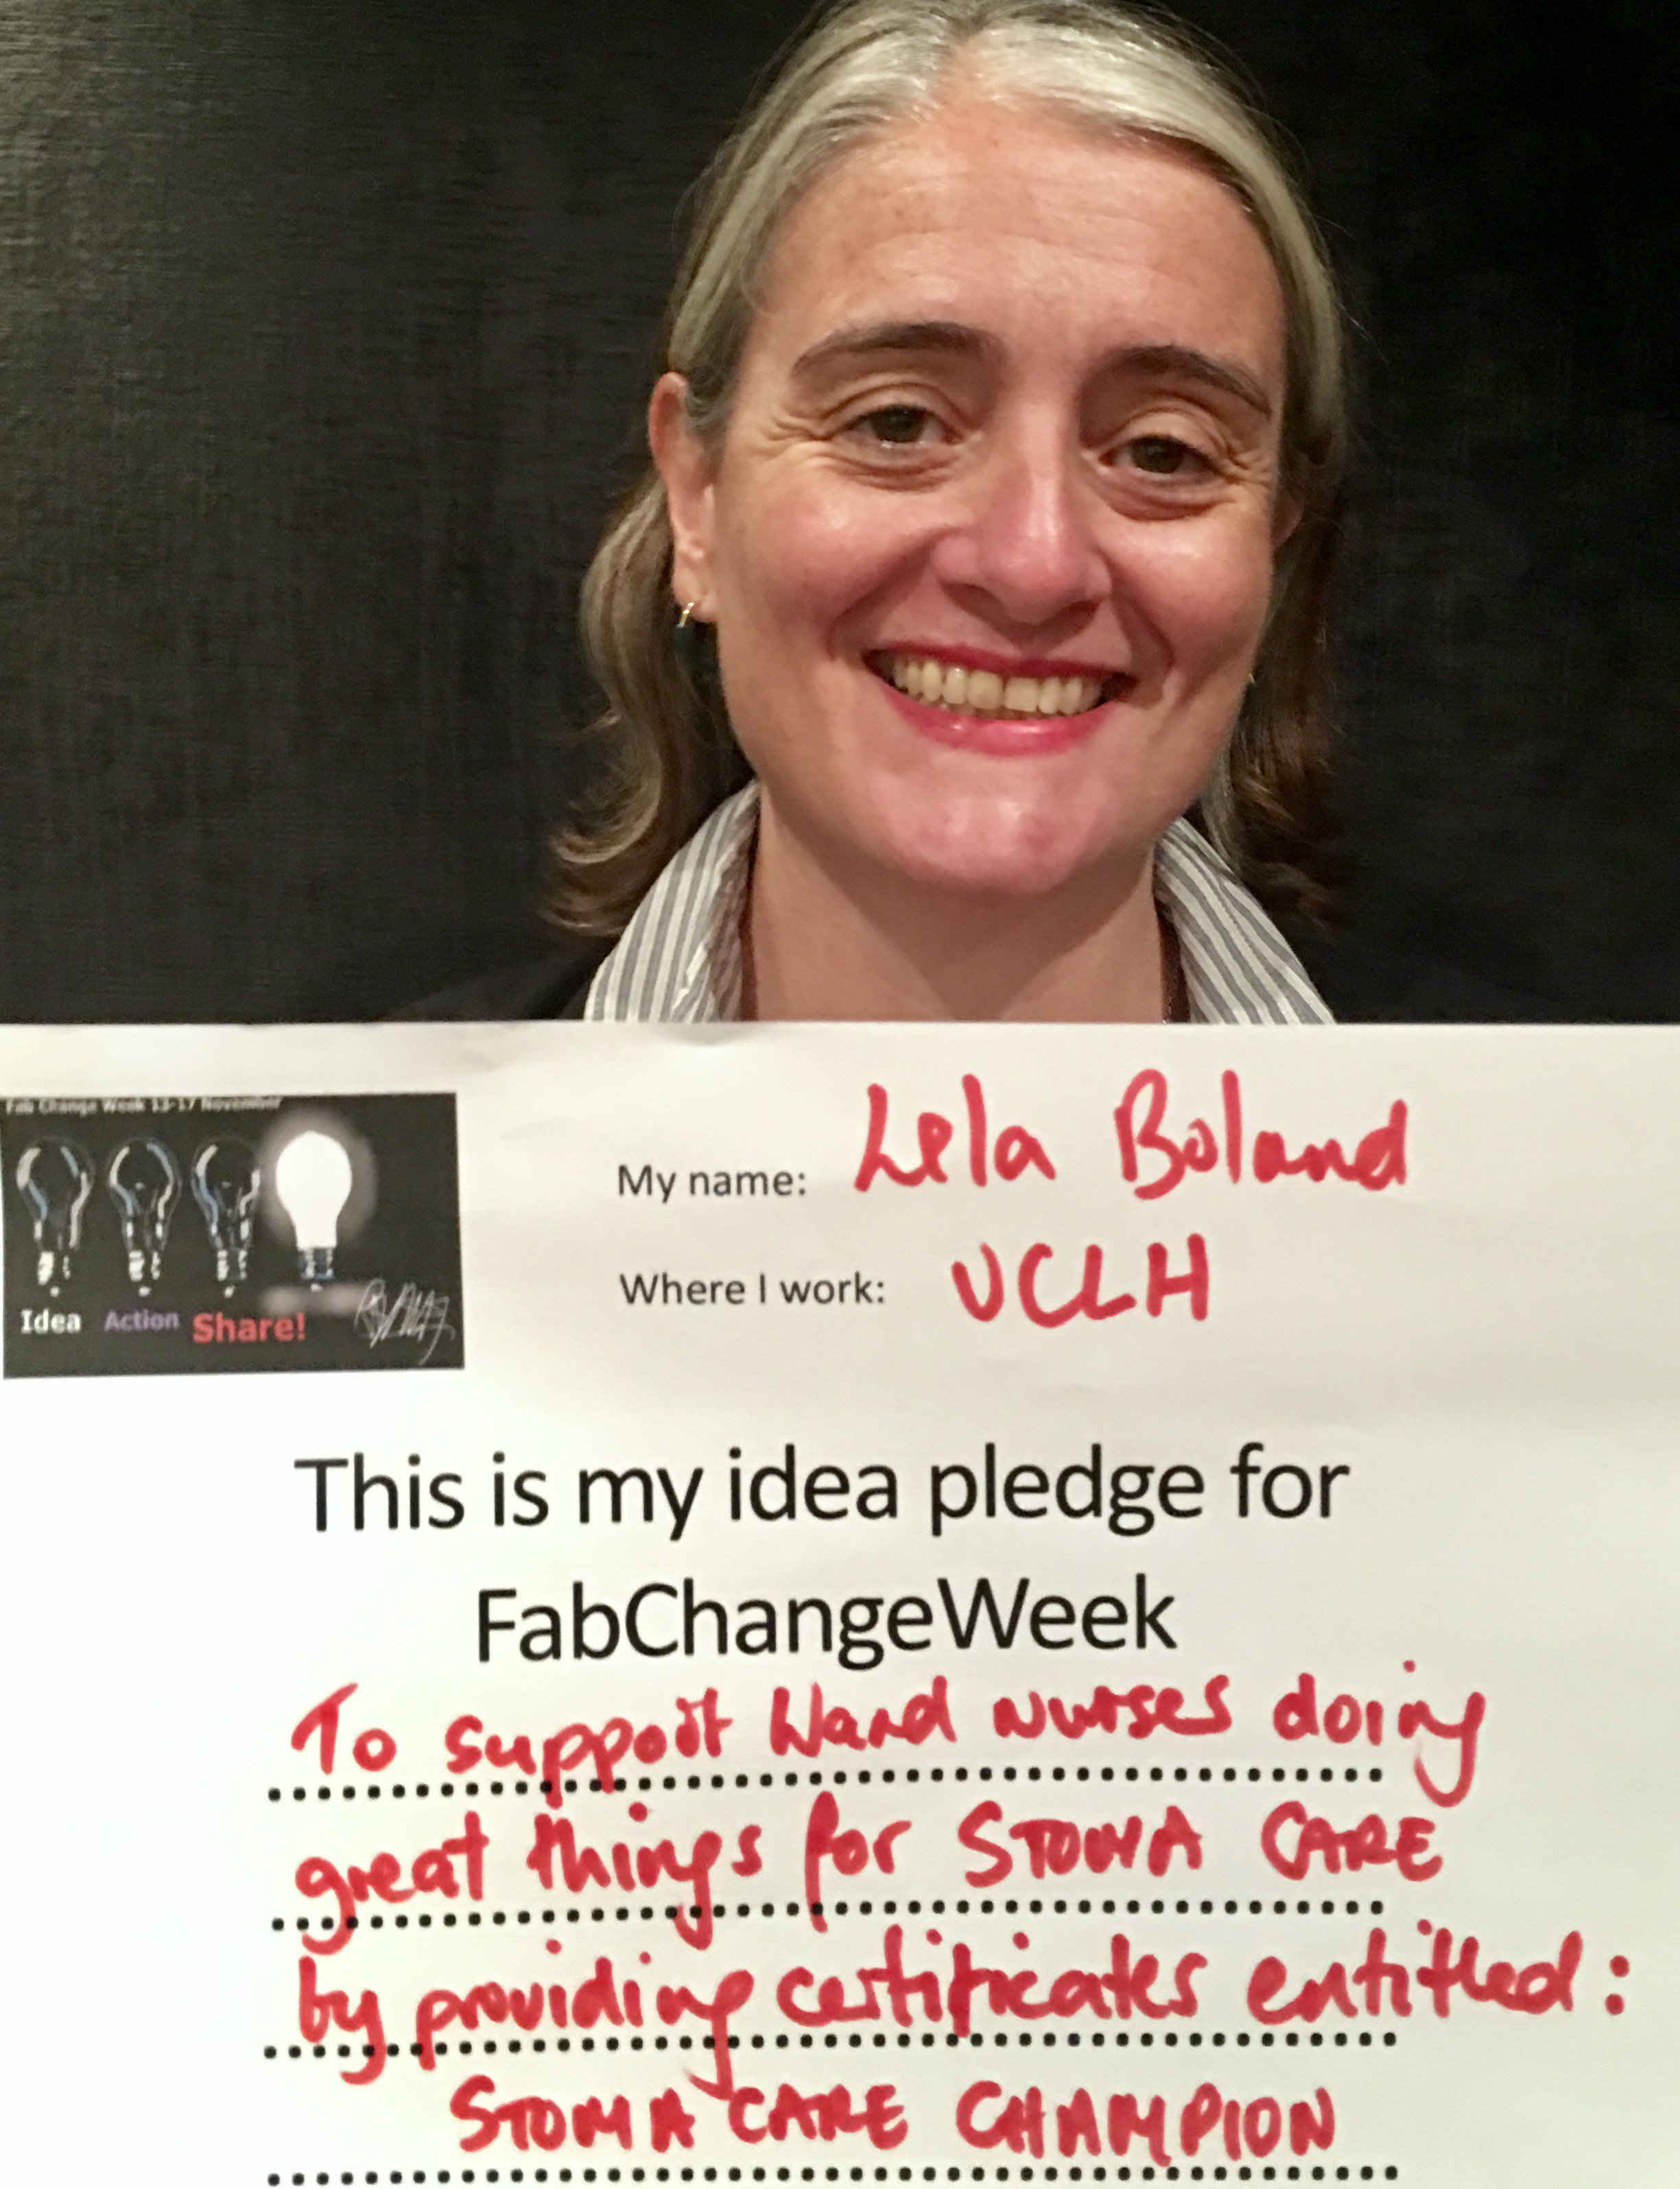 Fab Change Week 13-17 November
Idea Action Share!
My name: Lela Boland
Where I work: UCLH
This is my idea pledge for
FabChangeWeek
To support Ward nurses doing
great things for STOMA CARE
by providing certificates entitled:
STOMA CARE CHAMPION